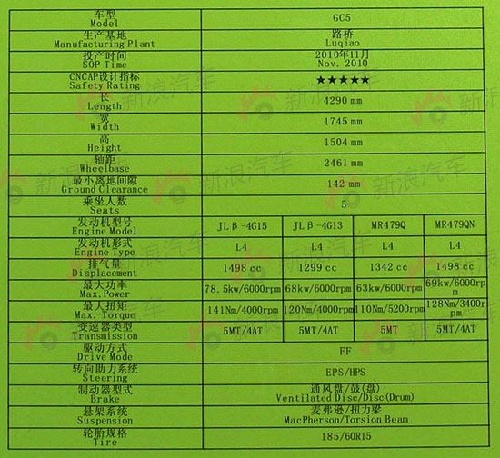 车型
Model
6C5
生产基地
Manufacturing Plant
路桥
Luqiao
投产时间
SOP Time
2010年11月
Nov. 2010
CNCAP设计指标
Safety Rating
★★★★★
长
Length
4290 mm
宽
Width
1745 mm
高
Height
1504 mm
轴距
Wheelbase
2461 mm
最小离地间隙
Ground Clearance
142 mm
乘坐人数
Seats
5
发动机型号
Engine Model
JLβ-4G15
JLβ-4G13
MR479Q
MR479QN
发动机形式
Engine Type
L4
L4
L4
L4
排气量
Displacement
1498 cc
1299 cc
1342 cc
1498 cc
最大功率
Max.Power
78.5kw/6000rpm
68kw/6000rpm
63kw/6000rpm
69kw/6000rp
m
最大扭矩
Max. Torque
141Nm/4000rpm
120Nm/4000rpm
110Nm/5200rpm
128Nm/3400r
pm
变速器类型
Transmission
5MT/4AT
5MT/4AT
5MT
5MT/4AT
驱动方式
Drive Mode
FF
转向助力系统
Steering
EPS/HPS
制动器型式
Brake
通风盘/鼓(盘)
Ventilated Disc/Disc(Drum)
悬架系统
Suspension
麦弗逊/扭力梁
MacPherson/Torsion Beam
轮胎规格
Tire
185/60R15
新浪汽车